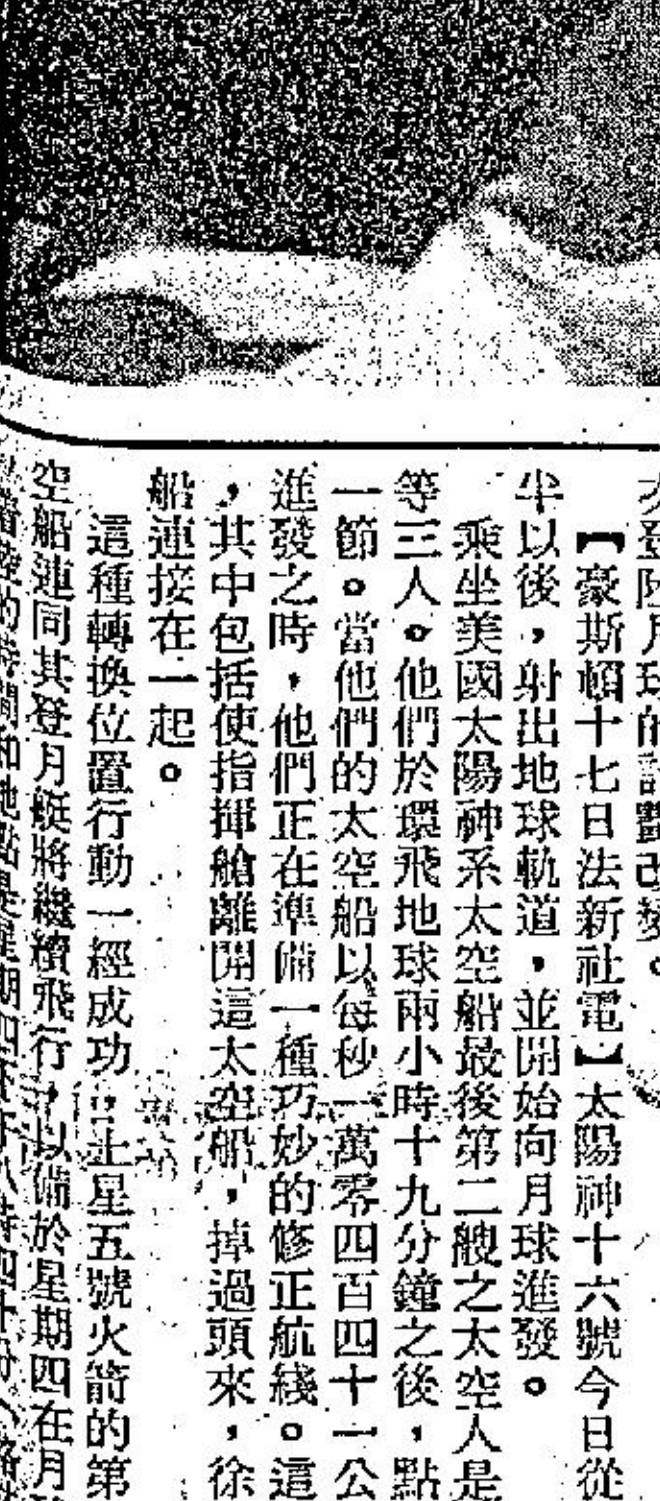 登陸月球的計劃改變。
【豪斯頓十七日法新社電】太陽神十六號今日從
半以後，射出地球軌道，並開始向月球進發。
乘坐美國太陽神系太空船最後第二艘之太空人是
等三人。他們於環飛地球兩小時十九分鐘之後，點
一節。當他們的太空船以每秒一萬零四百四十一公
進發之時，他們正在準備一種巧妙的修正航綫。這
，其中包括使指揮艙離開這太空船，掉過頭來，徐
船連接在一起。
這種轉換位置行動一經成功，土星五號火箭的第
空船連同其登月艇將繼續飛行，以備於星期四在月
着陸的時間和地點是星期四